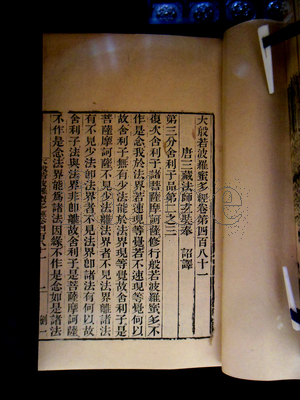 大般若波羅蜜多經卷第四百八十一
唐三藏法師玄奘奉 詔譯
第三分舍利子品第二之三
復次舍利子諸菩薩摩訶薩修行般若波羅蜜多
作是念我於法界若速現等覺若不速現等覺何以
故舍利子無有少法能於法界現等覺故舍利子是
菩薩摩訶薩不見少法離法界者不見法界離諸法
有不見少法卽法界者不見法界卽諸法有何以故
舍利子法與法界非卽離故舍利子是菩薩摩訶薩
不作是念法界能爲諸法因緣不作是念如是諸法